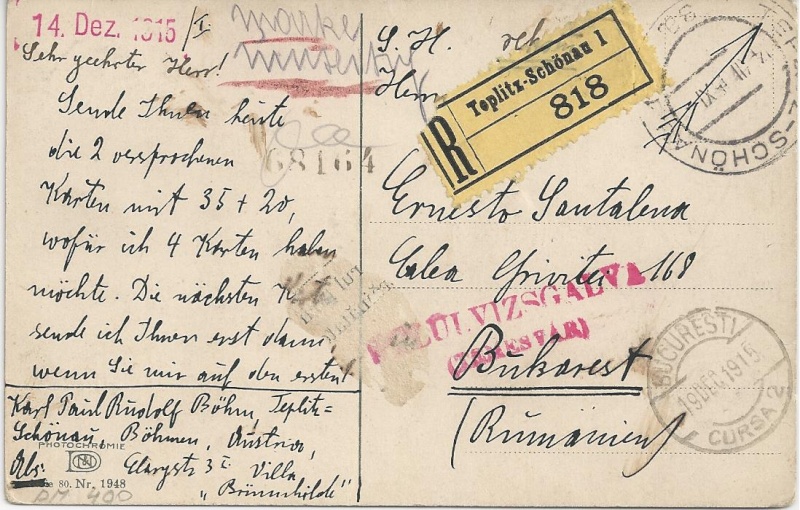 14. Dez. 1915
Sehr geehrter Herr!
Sende Ihnen heute
die 2 versprochenen
Karten mit 35 + 20,
wofür ich 4 Karten haben
möchte. Die nächsten
sende ich Ihnen erst dann
wenn Sie mir auf den ersten
Karl Paul Rudolf Böhm, Teplitz-
Schönau, Böhmen, Austria,
Abs: Villa
"Brünnhilde"
PHOTOCHROMIE
80. Nr. 1948
68164
S. H.
Herrn
R Teplitz-Schönau 1
818
Ernesto Santalena
Calea Grivitei 168
FELÜLVIZSGÁLVA
(TEMESVÁR)
Bukarest
(Rumänien)
SCHÖNAU
BUCURESTI
19 DEC 1915
CURSA 2